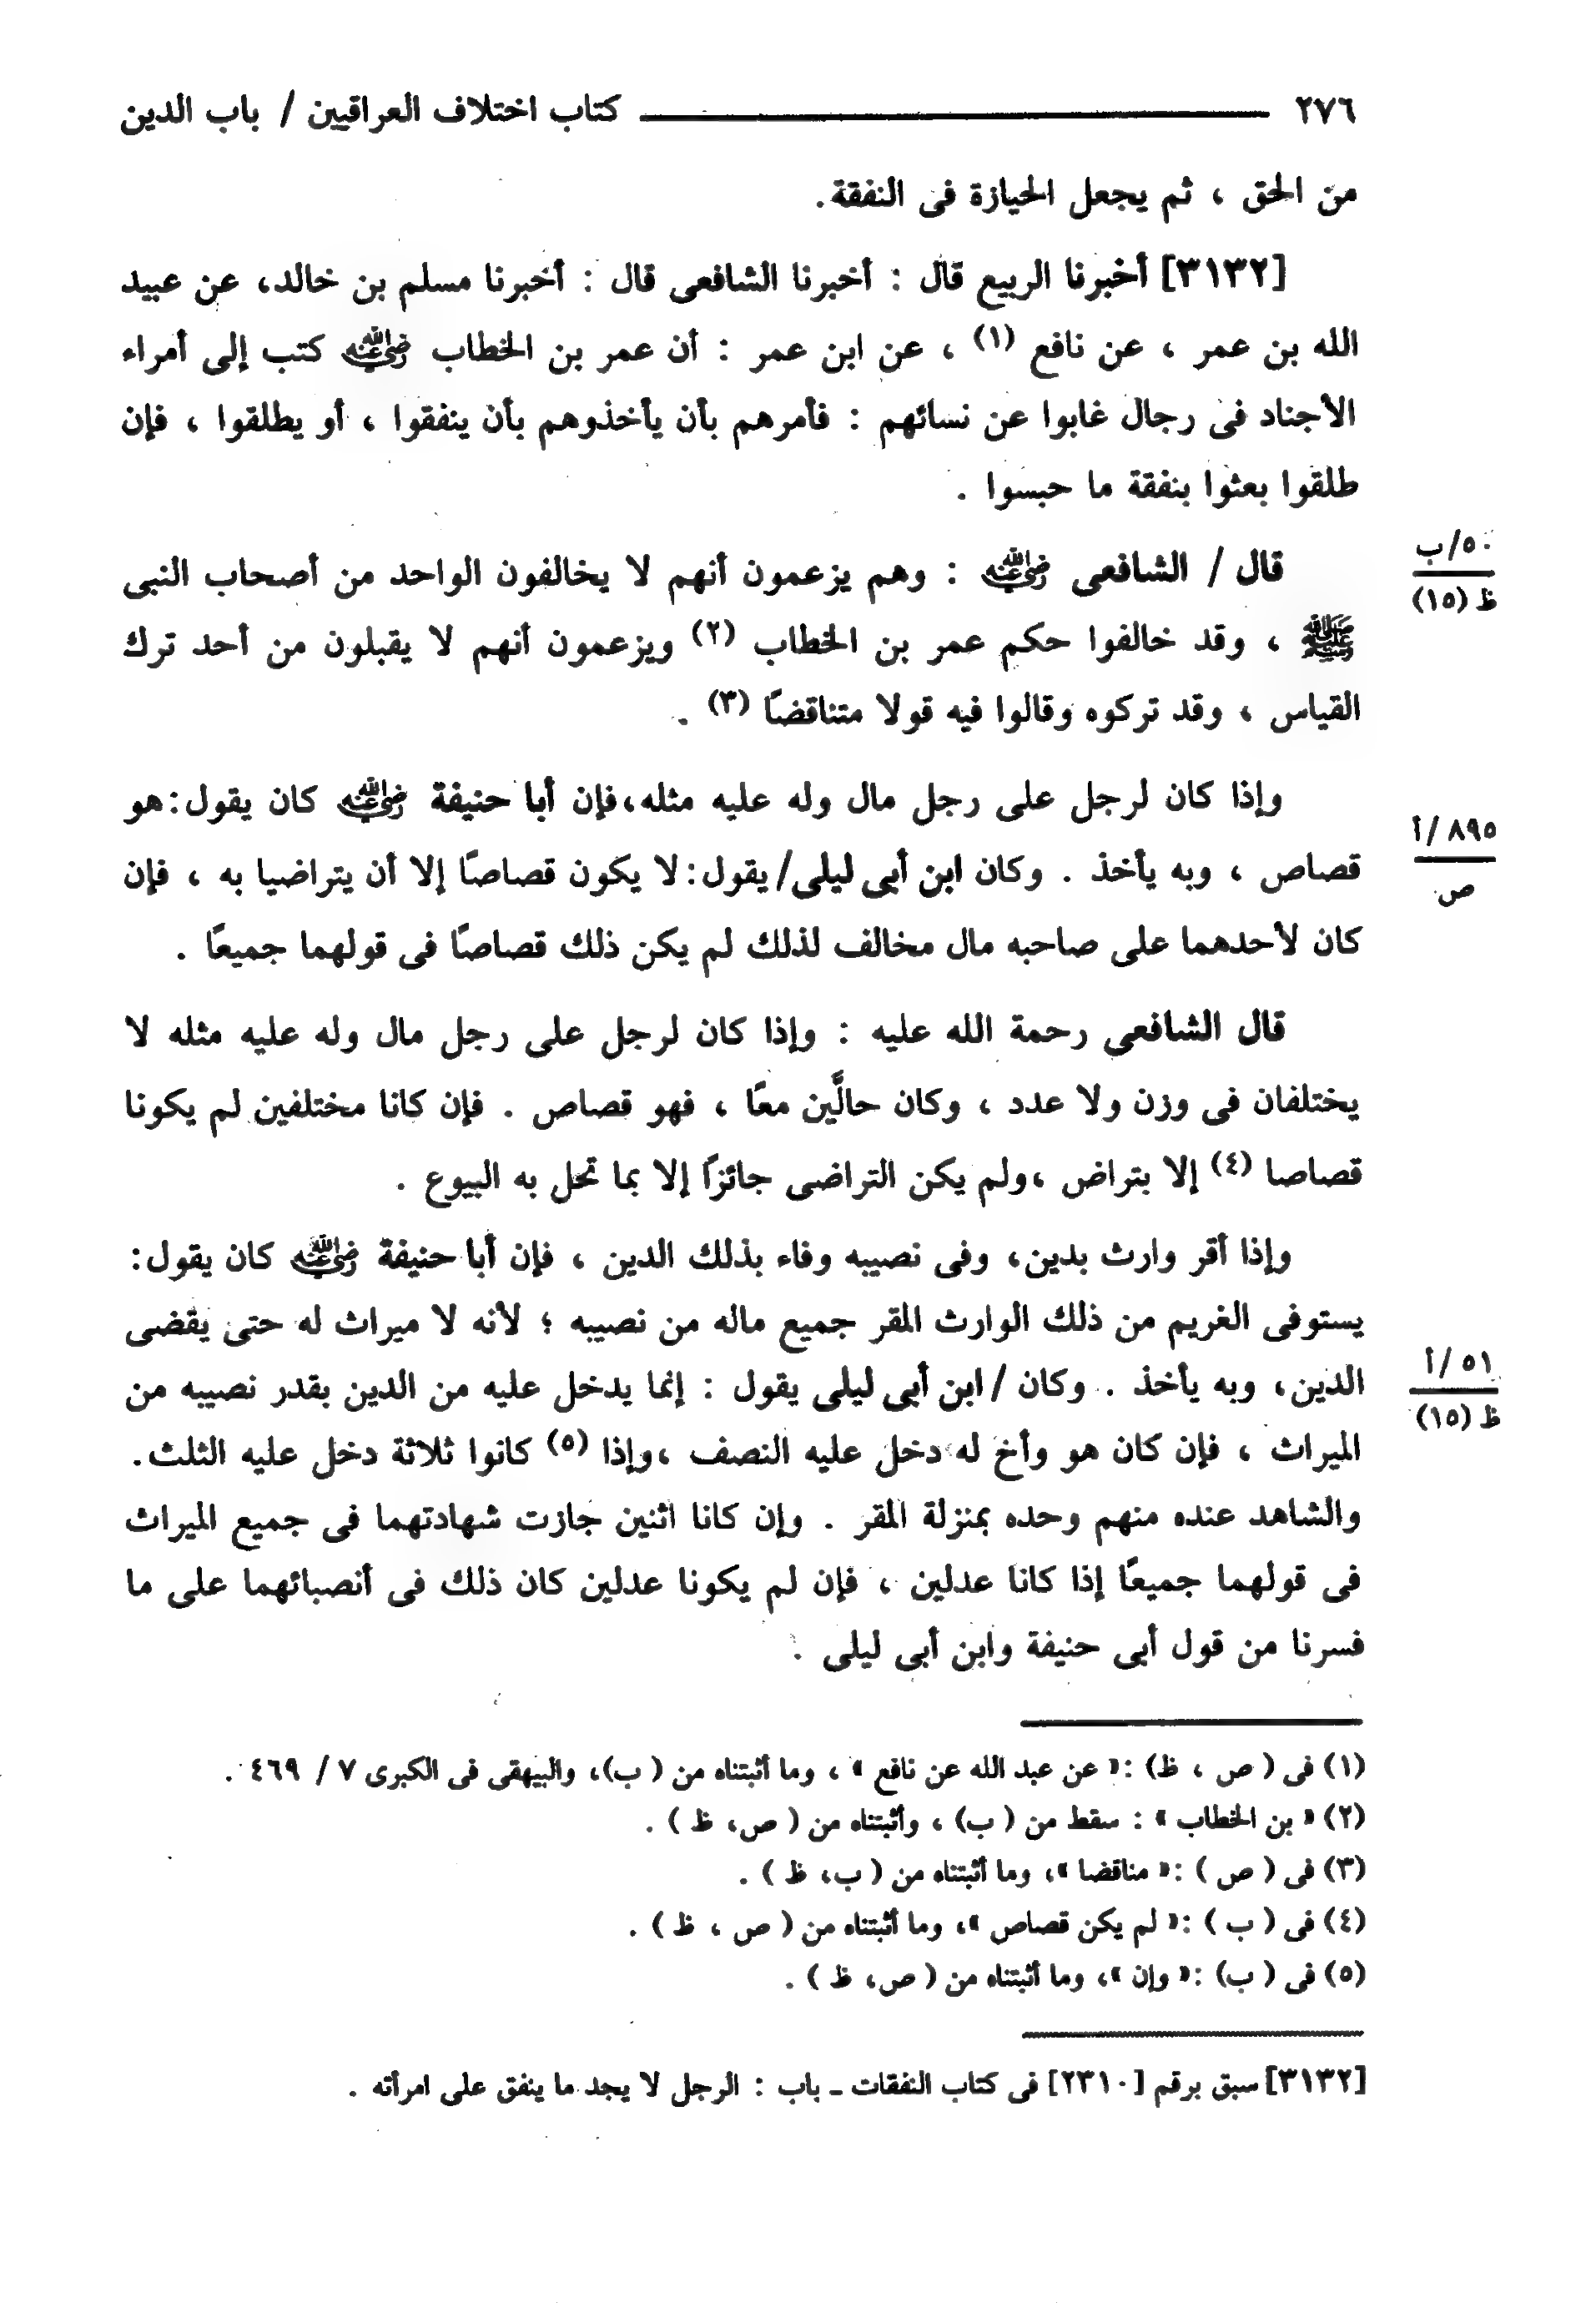 ٢٧٦ كتاب اختلاف العراقيين / باب الدين
من الحق ، ثم يجعل الحيازة فى النفقة.
[٣١٣٢] أخبرنا الربيع قال : أخبرنا الشافعى قال : أخبرنا مسلم بن خالد، عن عبيد
الله بن عمر ، عن نافع (١) ، عن ابن عمر : أن عمر بن الخطاب رضي الله عنه كتب إلى أمراء
الأجناد فى رجال غابوا عن نسائهم : فأمرهم بأن يأخذوهم بأن ينفقوا ، أو يطلقوا ، فإن
طلقوا بعثوا بنفقة ما حبسوا .
قال / الشافعى رضي الله عنه : وهم يزعمون أنهم لا يخالفون الواحد من أصحاب النبى
٥٠/ب
ظ (١٥)
ﷺ ، وقد خالفوا حكم عمر بن الخطاب (٢) ويزعمون أنهم لا يقبلون من أحد ترك
القياس ، وقد تركوه وقالوا فيه قولا متناقضًا (٣) .
وإذا كان لرجل على رجل مال وله عليه مثله،فإن أبا حنيفة رضي الله عنه كان يقول:هو
٨٩٥ /أ
ص
قصاص ، وبه يأخذ . وكان ابن أبى ليلى/ يقول:لا يكون قصاصًا إلا أن يتراضيا به ، فإن
كان لأحدهما على صاحبه مال مخالف لذلك لم يكن ذلك قصاصًا فى قولهما جميعًا .
قال الشافعى رحمة الله عليه : وإذا كان لرجل على رجل مال وله عليه مثله لا
يختلفان فى وزن ولا عدد ، وكان حالَّين معًا ، فهو قصاص . فإن كانا مختلفين لم يكونا
قصاصا (٤) إلا بتراض ،ولم يكن التراضى جائزًا إلا بما تحل به البيوع .
وإذا أقر وارث بدين، وفى نصيبه وفاء بذلك الدين ، فإن أبا حنيفة رضي الله عنه كان يقول:
يستوفى الغريم من ذلك الوارث المقر جميع ماله من نصيبه ؛ لأنه لا ميراث له حتى يقضى
الدين، وبه يأخذ . وكان / ابن أبى ليلى يقول : إنما يدخل عليه من الدين بقدر نصيبه من
٥١ /أ
ظ (١٥)
الميراث ، فإن كان هو وأخ له دخل عليه النصف ،وإذا (٥) كانوا ثلاثة دخل عليه الثلث.
والشاهد عنده منهم وحده بمنزلة المقر . وإن كانا اثنين جازت شهادتهما فى جميع الميراث
فى قولهما جميعًا إذا كانا عدلين ، فإن لم يكونا عدلين كان ذلك فى أنصبائهما على ما
فسرنا من قول أبى حنيفة وابن أبى ليلى .
(١) فى ( ص ، ظ) :« عن عبد الله عن نافع » ، وما أثبتناه من ( ب)، والبيهقى فى الكبرى ٧ / ٤٦٩ .
(٢) « بن الخطاب » : سقط من ( ب) ، وأثبتناه من ( ص، ظ ) .
(٣) فى ( ص ) :« مناقضا »، وما أثبتناه من ( ب، ظ ) .
(٤) فى ( ب ) :« لم يكن قصاص »، وما أثبتناه من ( ص ، ظ ) .
(٥) فى ( ب) :« وإن »، وما أثبتناه من ( ص، ظ ) .
[٣١٣٢] سبق برقم [٢٣١٠] فى كتاب النفقات ـ باب : الرجل لا يجد ما ينفق على امرأته .